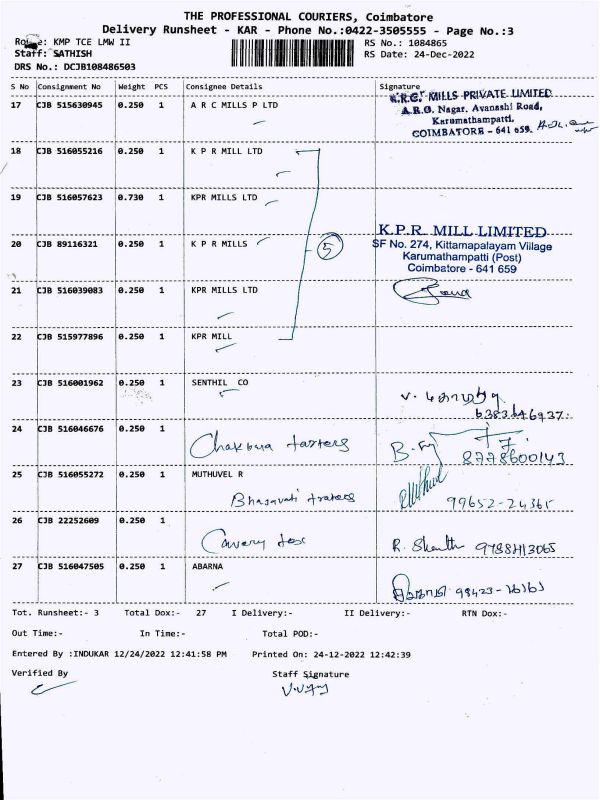 THE PROFESSIONAL COURIERS, Coimbatore
Delivery Runsheet - KAR - Phone No.:0422-3505555 - Page No.:3
KMP TCE LMW II
RS No.: 1084865
Staff: SATHISH
RS Date: 24-Dec-2022
DRS No.: DCJB108486503
S No Consignment No Weight PCS Consignee Details Signature
17 CJB 515630945 0.250 1 A R C MILLS P LTD
A.R.C. MILLS PRIVATE LIMITED
Nagar, Avanashi Road,
Karumathampatti,
COIMBATORE - 641 659.
18 CJB 516055216 0.250 1 K P R MILL LTD
19 CJB 516057623 0.730 1 KPR MILLS LTD
K.P.R. MILL LIMITED
20 CJB 89116321 0.250 1 K P R MILLS 5
SF No. 274, Kittampalayam Village
Karumathampatti (Post)
Coimbatore - 641 659
21 CJB 516039083 0.250 1 KPR MILLS LTD
22 CJB 515977896 0.250 1 KPR MILL
23 CJB 516001962 0.250 1 SENTHIL CO
24 CJB 516046676 0.250 1
8778600143
25 CJB 516055272 0.250 1 MUTHUVEL R
99652-24365
26 CJB 22252609 0.250 1
Cavery tex
27 CJB 516047505 0.250 1 ABARNA
Tot. Runsheet:- 3 Total Dox:- 27 I Delivery:- II Delivery:- RTN Dox:-
Out Time:- In Time:- Total POD:-
Entered By :INDUKAR 12/24/2022 12:41:58 PM Printed On: 24-12-2022 12:42:39
Verified By Staff Signature